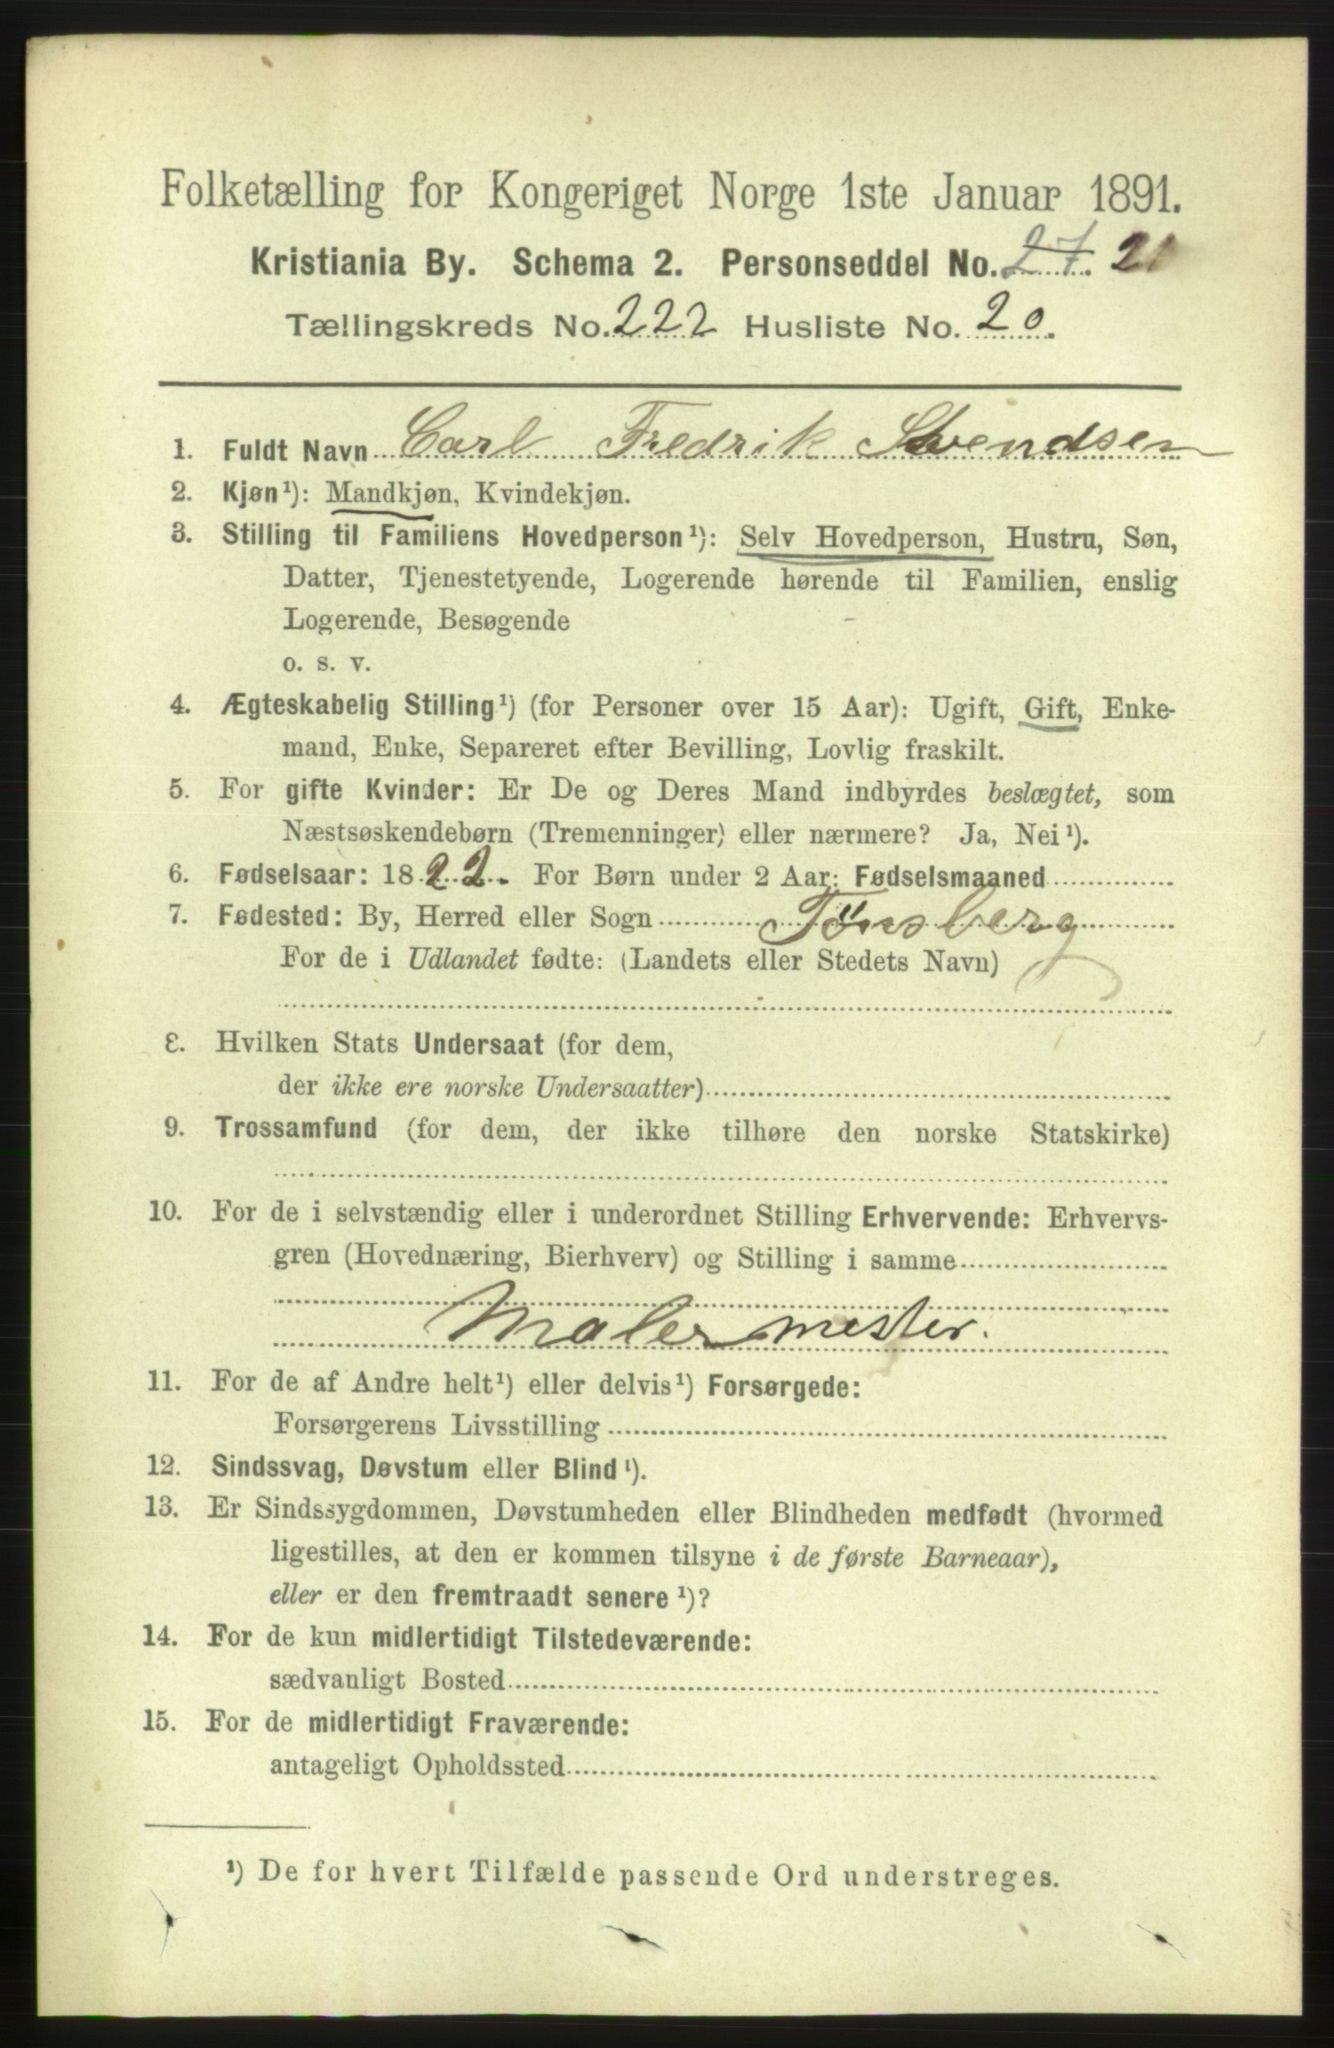 Folketælling for Kongeriget Norge 1ste Januar 1891.
Kristiania By. Schema 2. Personseddel No. 27. 21
Tællingskreds No. 222 Husliste No. 20.
1. Fuldt Navn Carl Fredrik Svendsen
2. Kjøn¹): Mandkjøn, Kvindekjøn.
3. Stilling til Familiens Hovedperson¹): Selv Hovedperson, Hustru, Søn,
Datter, Tjenestetyende, Logerende hørende til Familien, enslig
Logerende, Besøgende
o. s. v.
4. Ægteskabelig Stilling¹) (for Personer over 15 Aar): Ugift, Gift, Enke-
mand, Enke, Separeret efter Bevilling, Lovlig fraskilt.
5. For gifte Kvinder: Er De og Deres Mand indbyrdes beslægtet, som
Næstsøskendebørn (Tremenninger) eller nærmere? Ja, Nei¹).
6. Fødselsaar: 1822. For Børn under 2 Aar: Fødselsmaaned
7. Fødested: By, Herred eller Sogn Tönsberg
For de i Udlandet fødte: (Landets eller Stedets Navn)
8. Hvilken Stats Undersaat (for dem,
der ikke ere norske Undersaatter)
9. Trossamfund (for dem, der ikke tilhøre den norske Statskirke)
10. For de i selvstændig eller i underordnet Stilling Erhvervende: Erhvervs-
gren (Hovednæring, Bierhverv) og Stilling i samme
Maler mester.
11. For de af Andre helt¹) eller delvis¹) Forsørgede:
Forsørgerens Livsstilling
12. Sindssvag, Døvstum eller Blind¹).
13. Er Sindssygdommen, Døvstumheden eller Blindheden medfødt (hvormed
ligestilles, at den er kommen tilsyne i de første Barneaar),
eller er den fremtraadt senere¹)?
14. For de kun midlertidigt Tilstedeværende:
sædvanligt Bosted
15. For de midlertidigt Fraværende:
antageligt Opholdssted
¹) De for hvert Tilfælde passende Ord understreges.